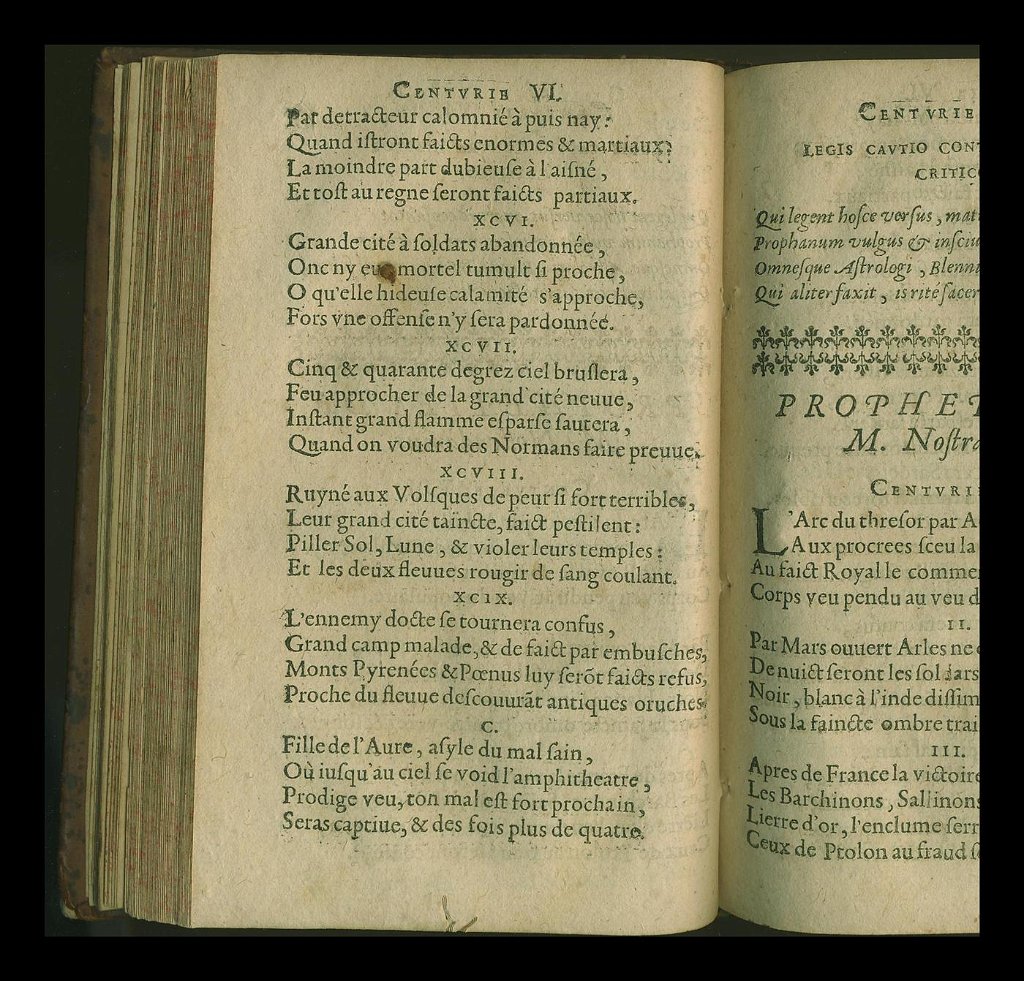 CENTVRIE VI.
Par detracteur calomnié à puis nay:
Quand iſtront faicts enormes & martiaux:
La moindre part dubieuſe à l'aiſné,
Et toſt au regne ſeront faicts partiaux.
XCVI.
Grande cité à ſoldats abandonnée,
Onc ny eu mortel tumult ſi proche,
O qu'elle hideuſe calamité s'approche,
Fors vne offenſe n'y ſera pardonnée.
XCVII.
Cinq & quarante degrez ciel bruſlera,
Feu approcher de la grand' cité neuue,
Inſtant grand flamme eſparſe ſautera,
Quand on voudra des Normans faire preuue.
XCVIII.
Ruyné aux Volſques de peur ſi fort terribles,
Leur grand cité taincte, faict peſtilent:
Piller Sol, Lune, & violer leurs temples:
Et les deux fleuues rougir de ſang coulant.
XCIX.
L'ennemy docte ſe tournera confus,
Grand camp malade, & de faict par embuſches,
Monts Pyrenées & Pœnus luy ſerõt faicts refus,
Proche du fleuue deſcouurãt antiques oruches.
C.
Fille de l'Aure, aſyle du mal ſain,
Où iuſqu'au ciel ſe void l'amphitheatre,
Prodige veu, ton mal eſt fort prochain,
Seras captiue, & des fois plus de quatre.
CENTVRIE
LEGIS CAVTIO CON
CRITIC
Qui legent hoſce verſus, mat
Prophanum vulgus & inſciu
Omneſque Aſtrologi, Blenni
Qui aliter faxit, is rité ſacer
PROPHET
M. Noſtra
CENTVRI
L'Arc du threſor par A
Aux procrees ſceu la
Au faict Royal le comme
Corps veu pendu au veu d
II.
Par Mars ouuert Arles ne
De nuict ſeront les ſoldars
Noir, blanc à l'inde diſſim
Sous la faincte ombre trai
III.
Apres de France la victoire
Les Barchinons, Sallinons
Lierre d'or, l'enclume ſerr
Ceux de Ptolon au fraud ſ